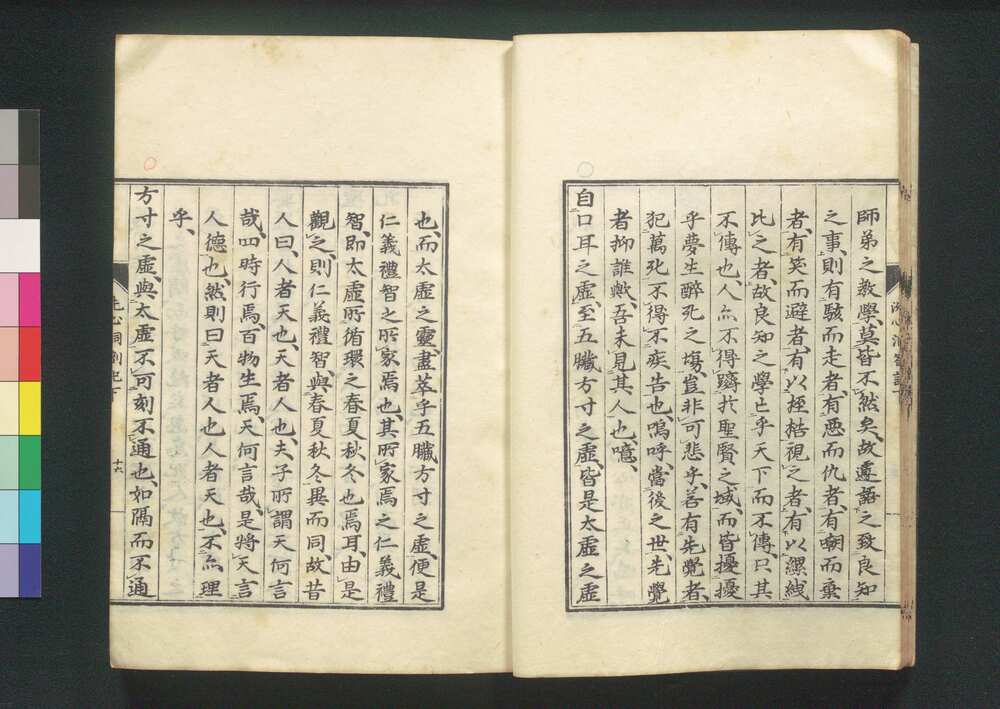 師弟之教學、莫皆不然矣、故遽語之致良知
之事、則有駭而走者、有惡而仇者、有嘲而棄
者、有笑而避者、有以桎梏視之者、有以縲絏
比之者、故良知之學亡乎天下而不傳、只其
不傳也、人亦不得躋於聖賢之域、而皆擾擾
乎夢生醉死之塲、豈非可悲乎、善有先覺者、
犯萬死不得不疾告也、嗚呼、當後之世、先覺
者抑誰歟、吾未見其人也、噫、
自口耳之虛、至五臟方寸之虛、皆是太虛之虛
也、而太虛之靈、盡萃乎五臟方寸之虛、便是
仁義禮智之所家焉也、其所家焉之仁義禮
智、即太虛所循環之春夏秋冬也焉耳、由是
觀之、則仁義禮智、與春夏秋冬異而同、故昔
人曰、人者天也、天者人也、夫子所謂天何言
哉、四時行焉、百物生焉、天何言哉、是將天言
人德也、然則曰天者人也人者天也、不亦理
乎、
方寸之虛、與太虛不可刻不通也、如隔而不通
洗心洞劄記
十六